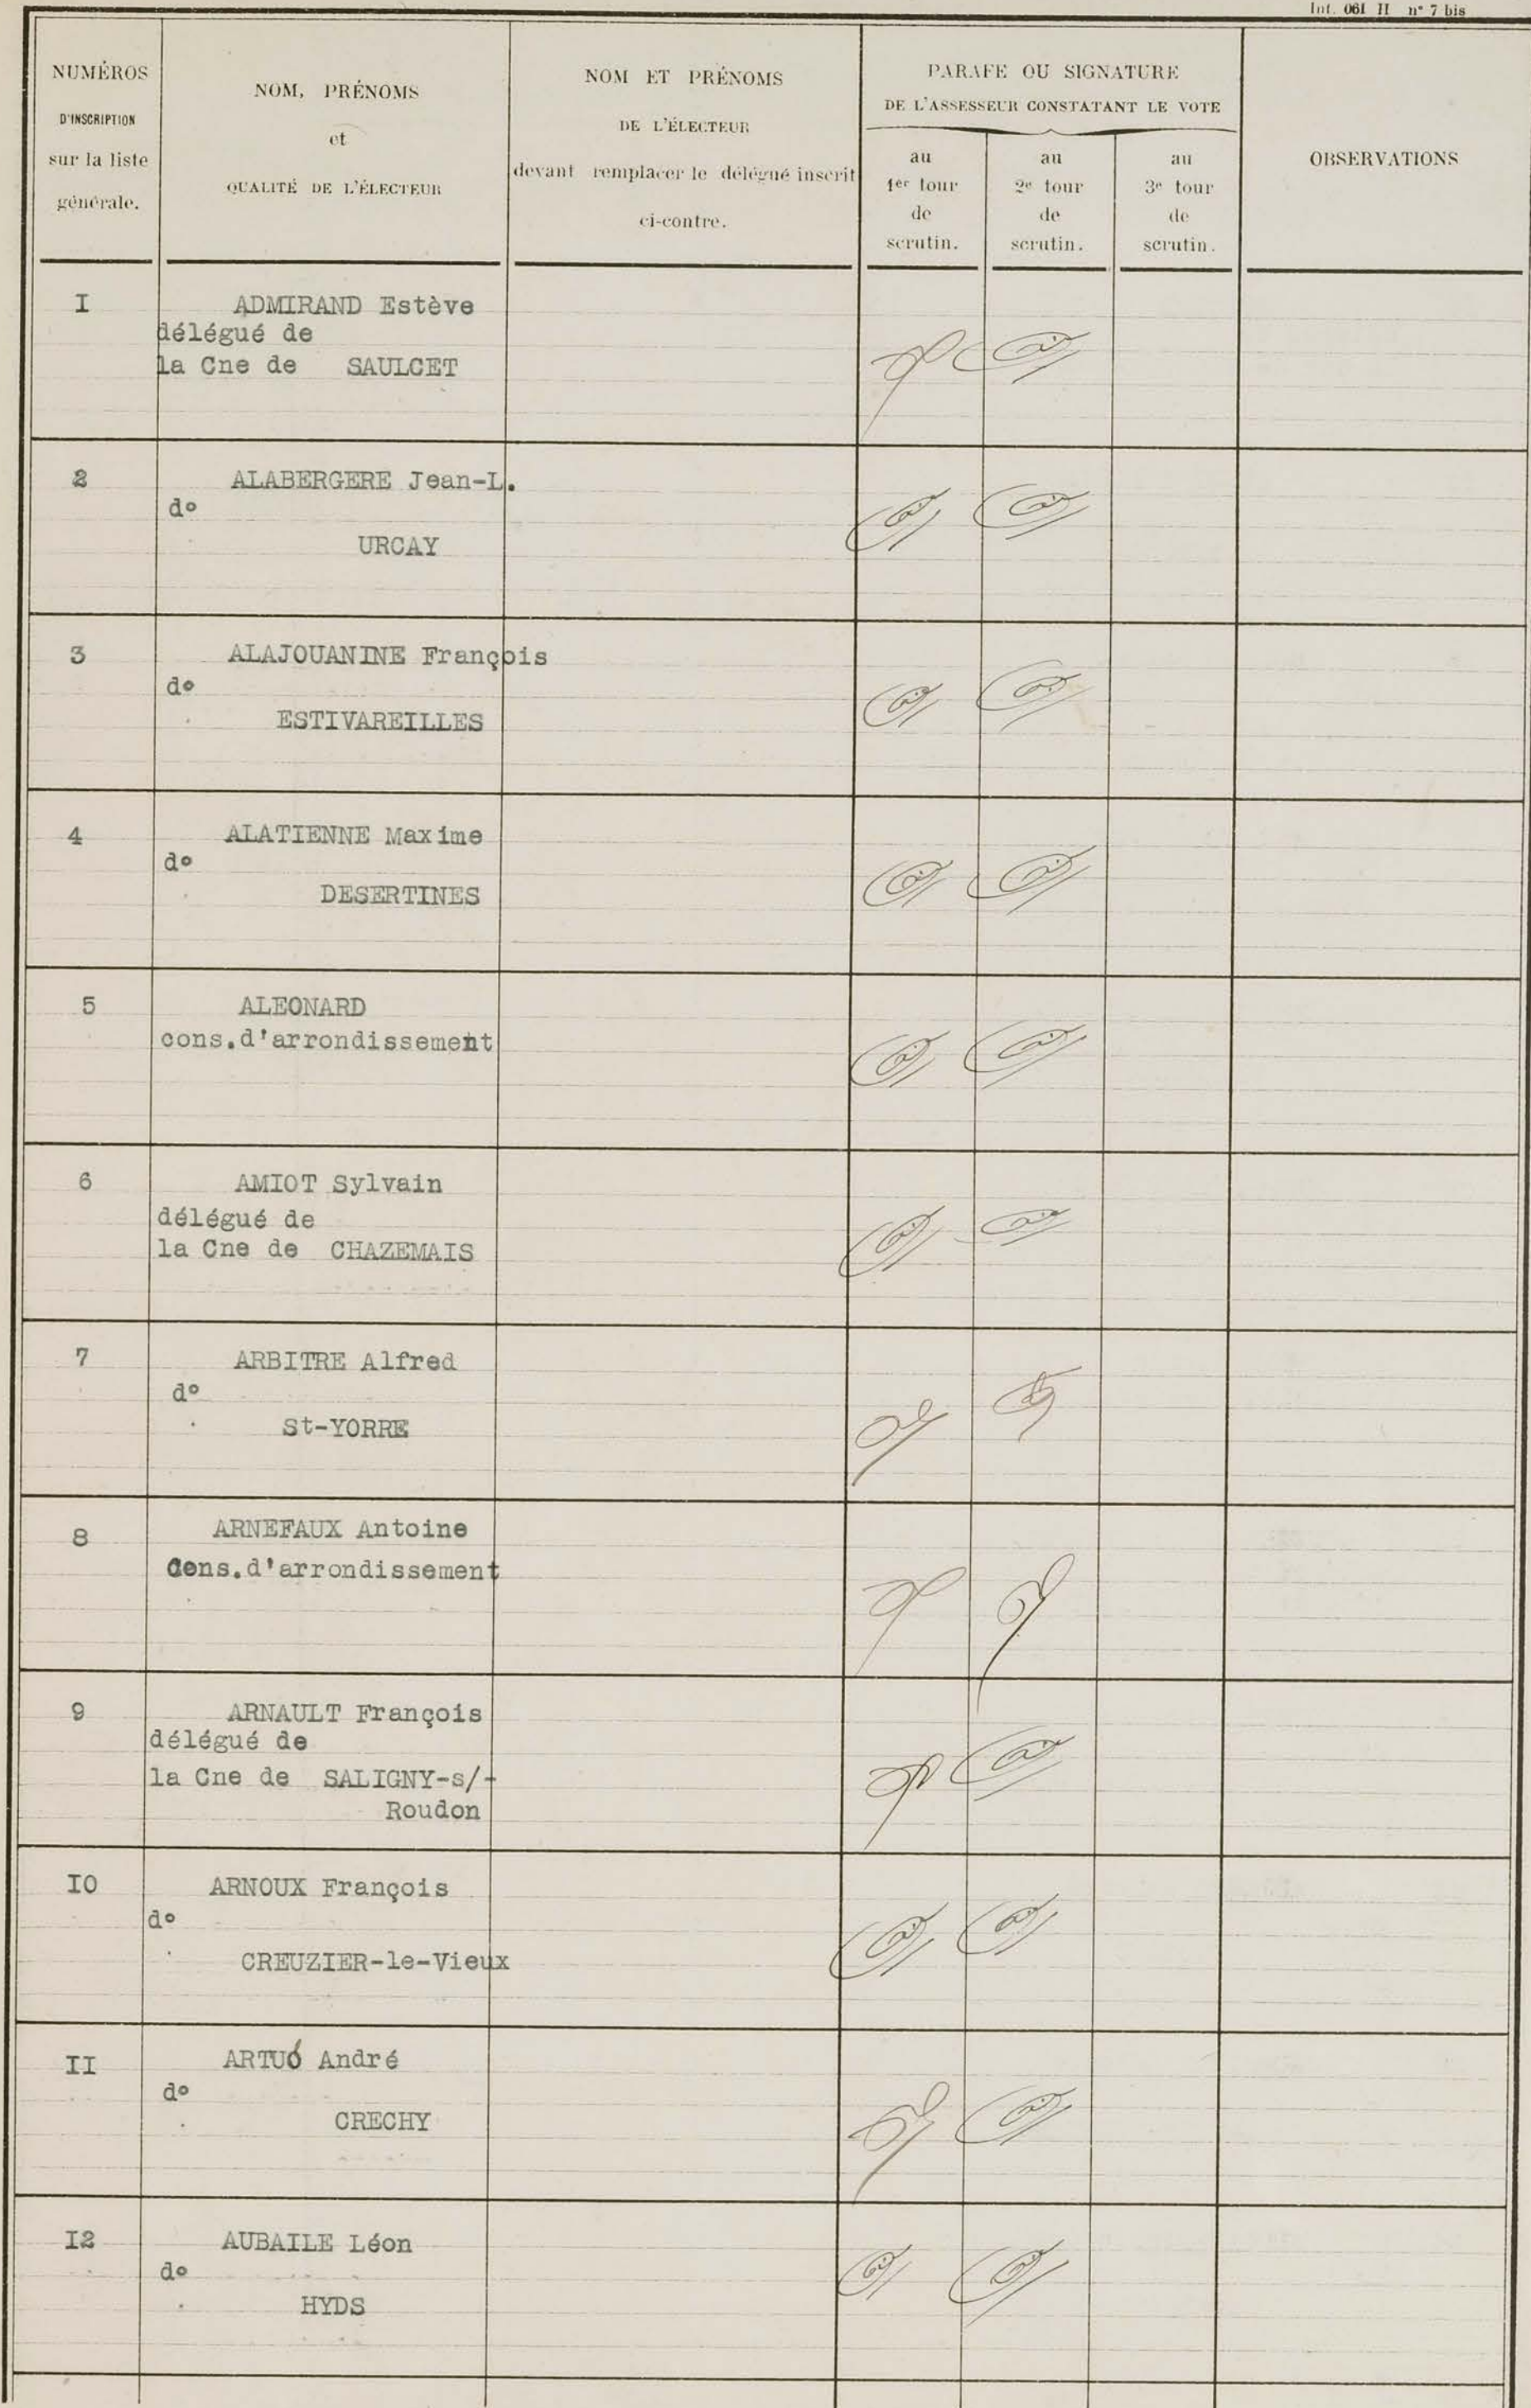 Int. 061 II n° 7 bis
NUMÉROS
D'INSCRIPTION
sur la liste
générale.
NOM, PRÉNOMS
et
QUALITÉ DE L'ÉLECTEUR
NOM ET PRÉNOMS
DE L'ÉLECTEUR
devant remplacer le délégué inscrit
ci-contre.
PARAFE OU SIGNATURE
DE L'ASSESSEUR CONSTATANT LE VOTE
au
1er tour
de
scrutin.
au
2e tour
de
scrutin.
au
3e tour
de
scrutin.
OBSERVATIONS
I ADMIRAND Estève
délégué de
la Cne de SAULCET
2 ALABERGERE Jean-L.
do
URCAY
3 ALAJOUANINE François
do
ESTIVAREILLES
4 ALATIENNE Maxime
do
DESERTINES
5 ALEONARD
cons.d'arrondissement
6 AMIOT Sylvain
délégué de
la Cne de CHAZEMAIS
7 ARBITRE Alfred
d°
St-YORRE
8 ARNEFAUX Antoine
Cons.d'arrondissement
9 ARNAULT François
délégué de
la Cne de SALIGNY-s/-
Roudon
IO ARNOUX François
do
CREUZIER-le-Vieux
II ARTUÓ André
do
CRECHY
I2 AUBAILE Léon
do
HYDS